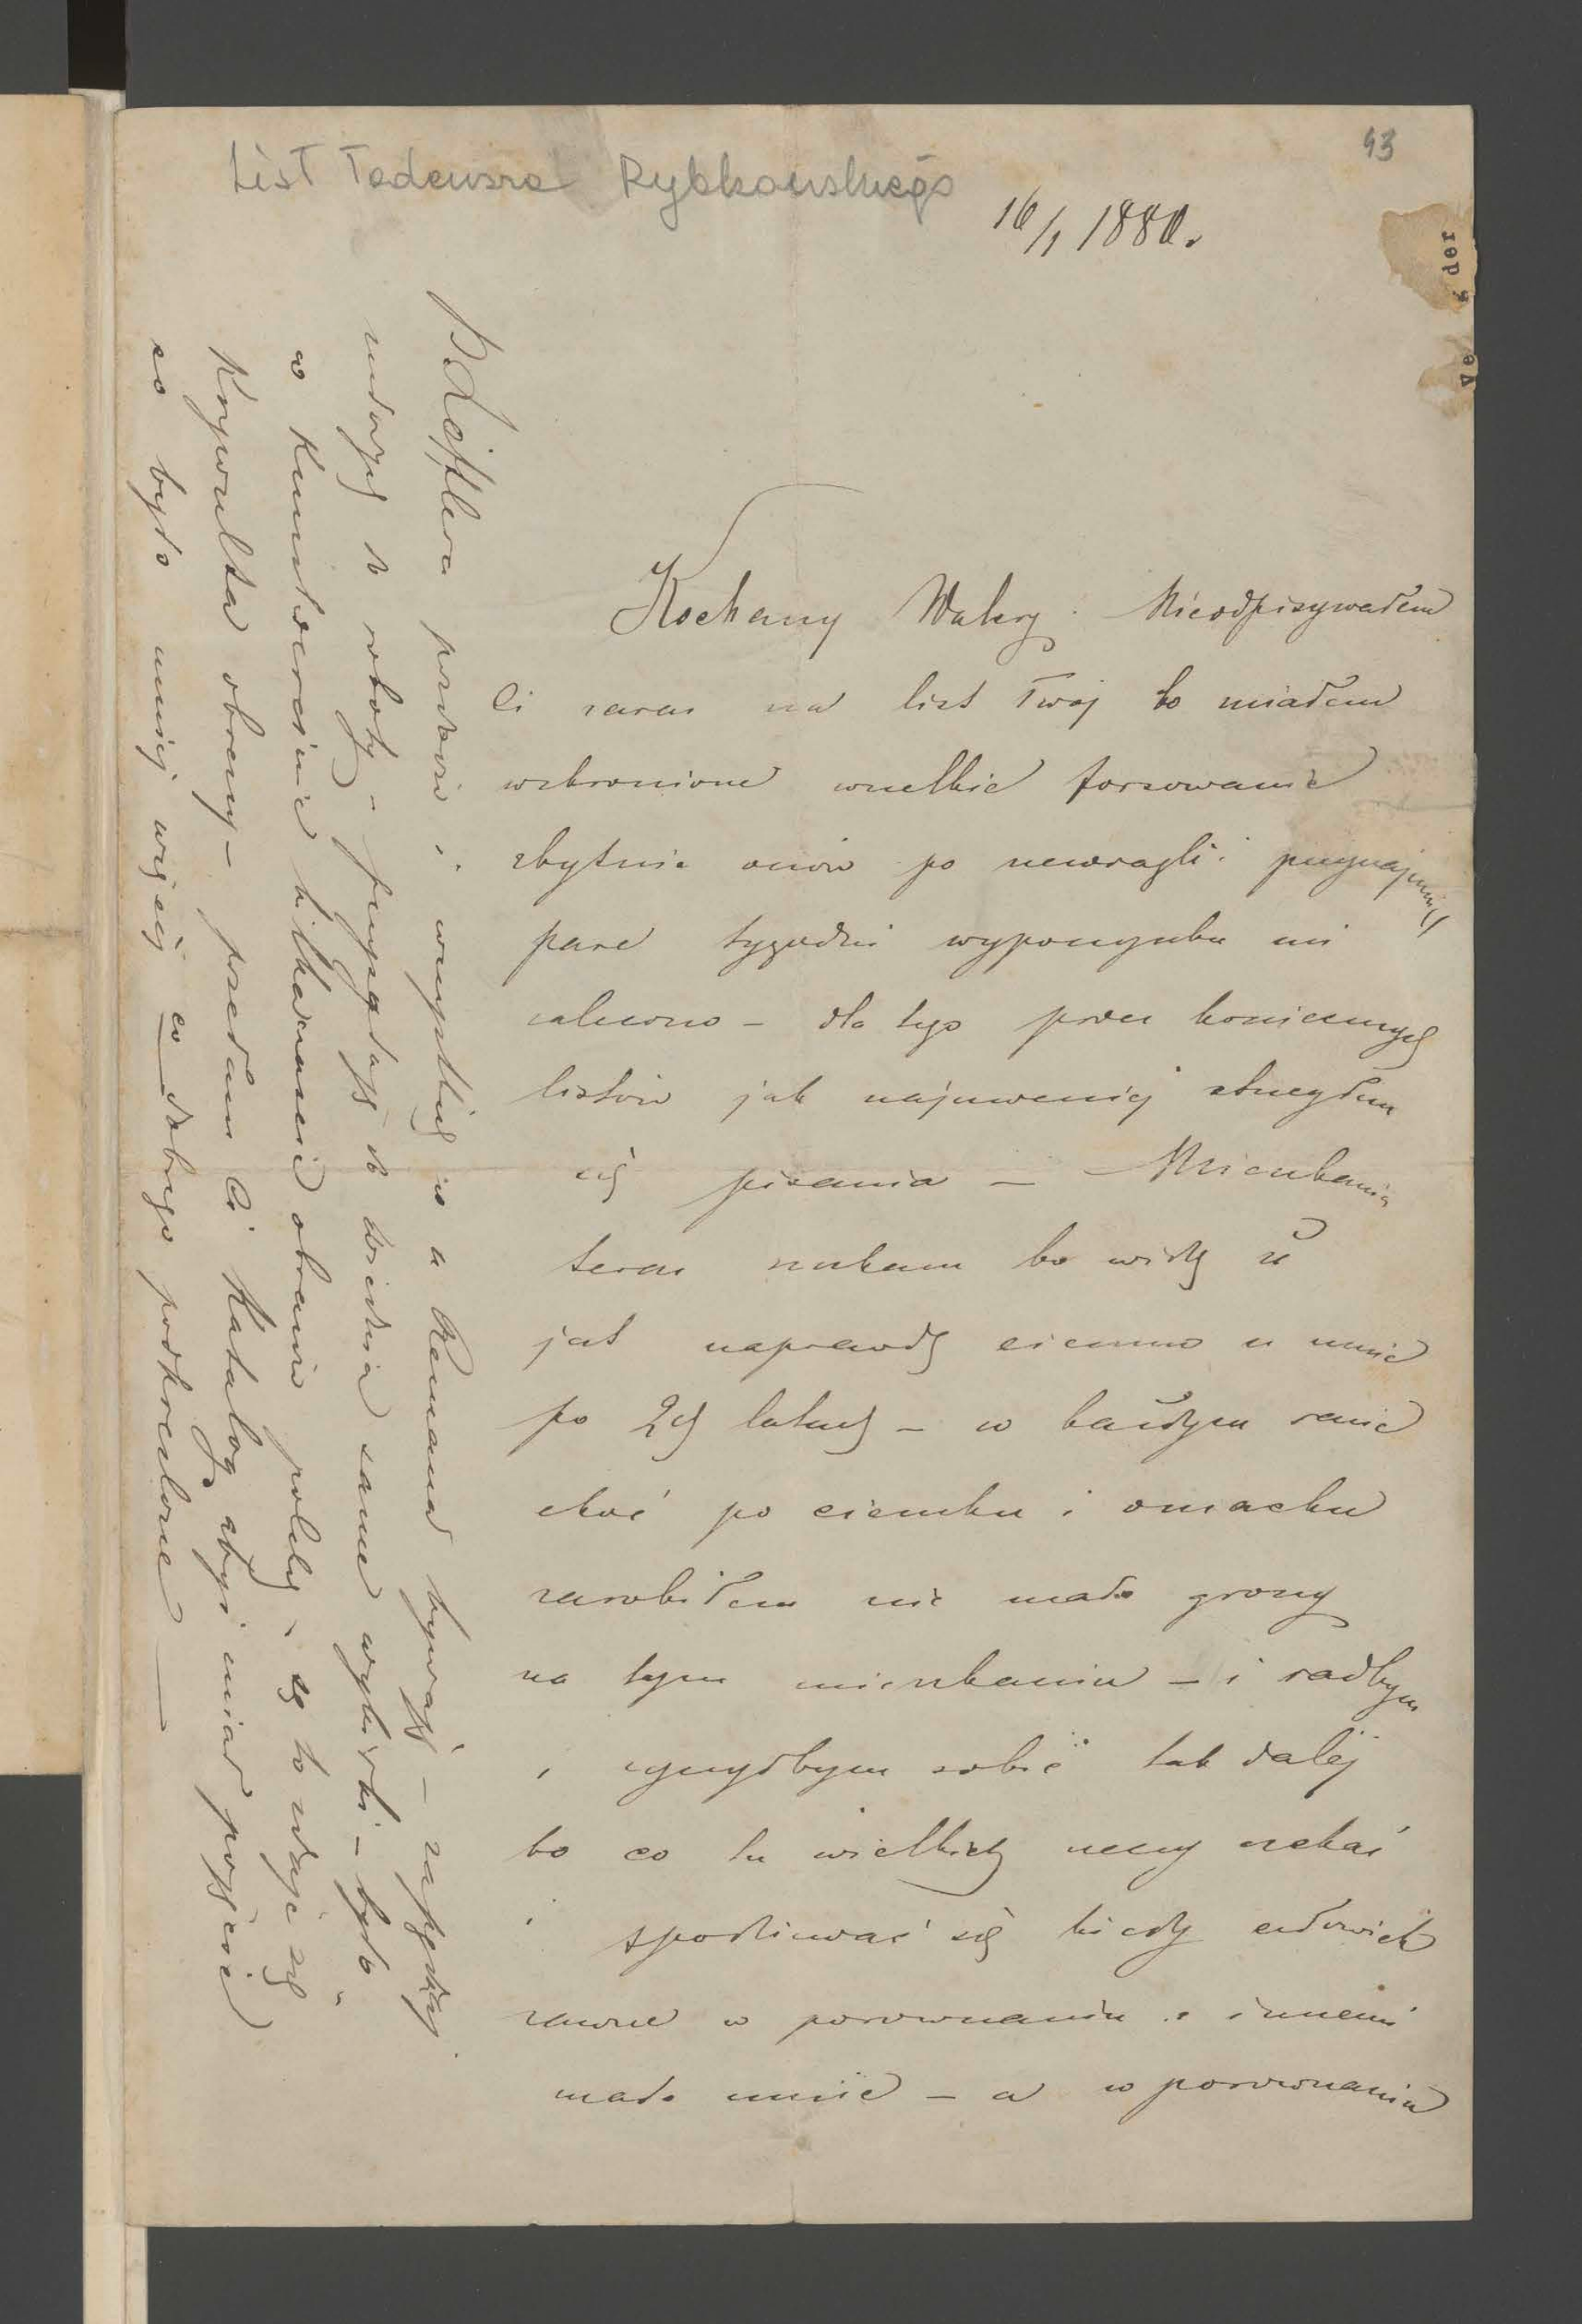 43
List Tadeusza Rybkowskiego
16/1 1880.
Kochany Walery. Nieodpisywałem
Ci zaraz na list Twój bo miałem
wzbronione wszelkie forsowanie
zbytnie oczów po newralgii przynajmniej
pare tygodni wypoczynku mi
zalecono – dla tego prócz koniecznych
listów jak najmoceniej strzegłem
się pisania – Mieszkania
teraz szukam bo widzę że
jak naprawdę ciemno u mnie
po 2ch latach – w każdym razie
choć po ciemku i omacku
zarobiłem nie mało groszy
na tym mieszkaniu – i radbym
i życzyłbym sobie tak dalej
bo co tu wielkich rzeczy czekać
i spodziewać się kiedy człowiek
zawsze w porównaniu z innemi
mało umie – a w porównaniu
Löfflera przecie i wszystkich co u Remana bywają –
do roboty – przyjadą do Wiednia same
w Kunstvereinie kilkanaście obrazów polskich to zdaje się
Krywulta obrazy – przesłam Ci Katalog abyś miał pojęcie
co było mniej więcej co dobrego podkreślone –
der
de